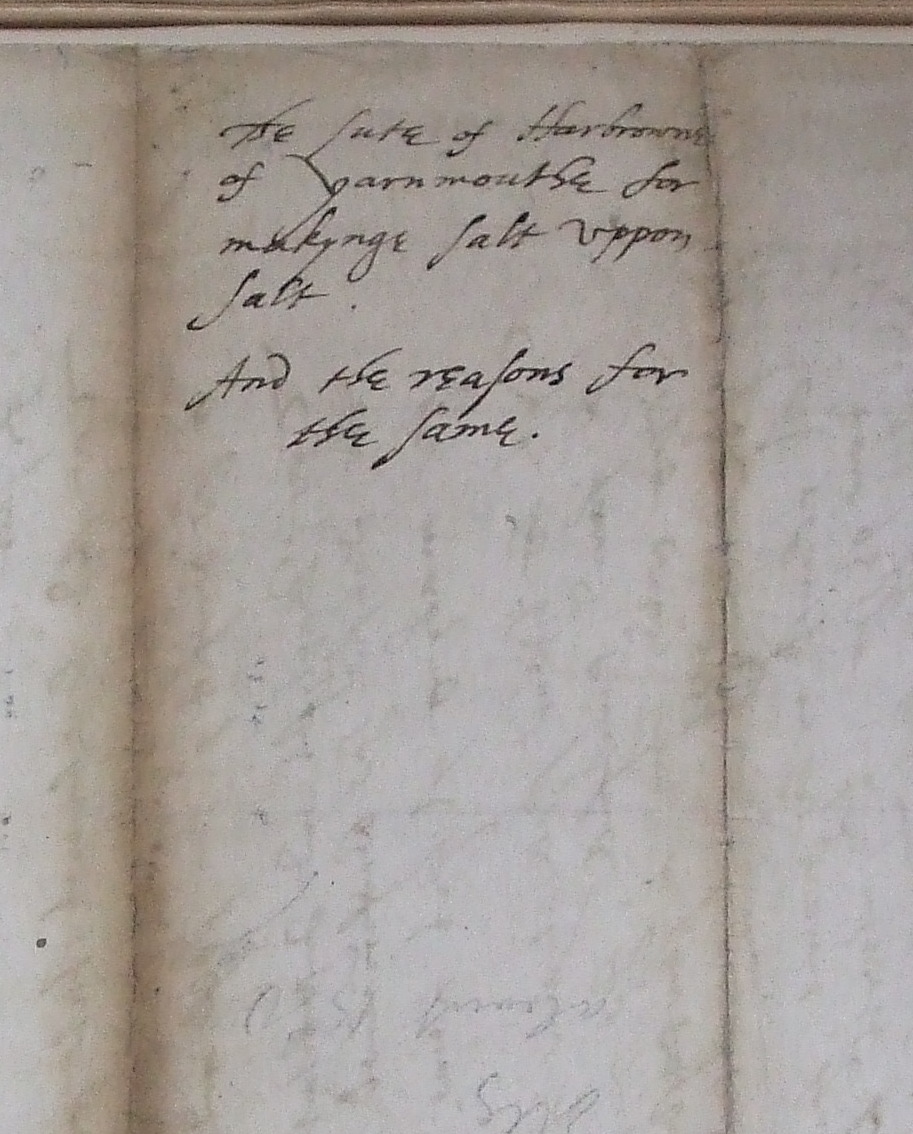 The sute of Harbrowne
of Yarnmouthe for
makynge salt vppon
salt.
And the reasons for
the same.